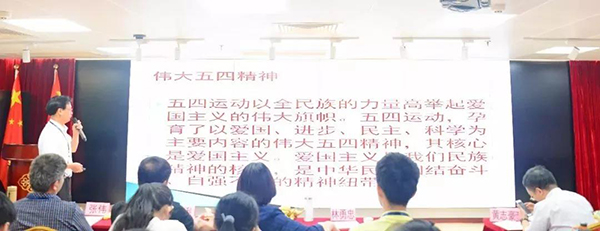 伟大五四精神
五四运动以全民族的力量高举起爱
国主义的伟大旗帜。五四运动，孕
育了以爱国、进步、民主、科学为
主要内容的伟大五四精神，其核心
是爱国主义。爱国主义 我们民族
精神的核 ，是中华民 结奋斗、
自强不 的精神纽带
张伟